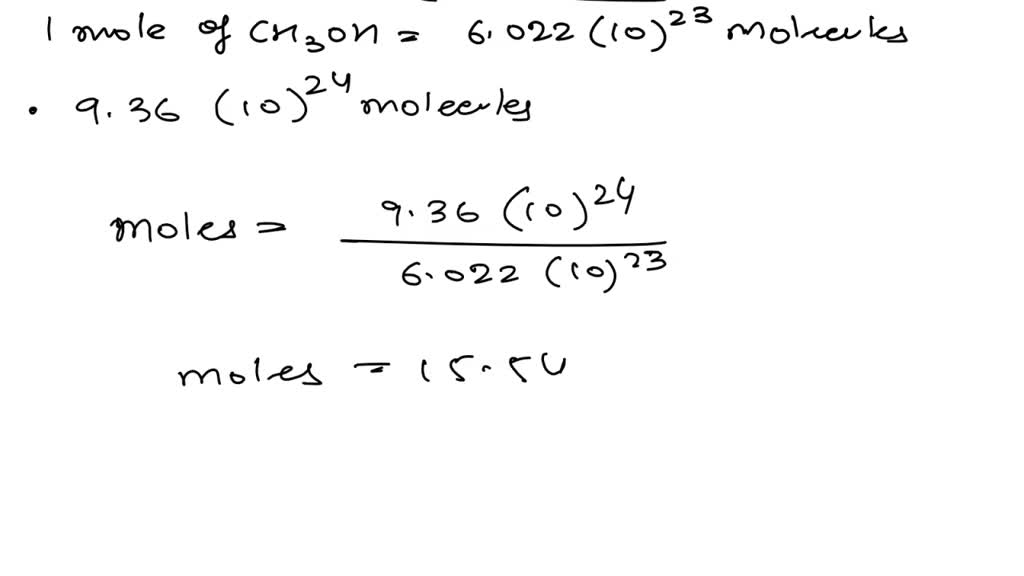 1 mole of CH3OH = 6.022 (10)^23 molecules
• 9.36 (10)^24 molecules
moles = 9.36 (10)^24 / 6.022 (10)^23
moles = 15.54